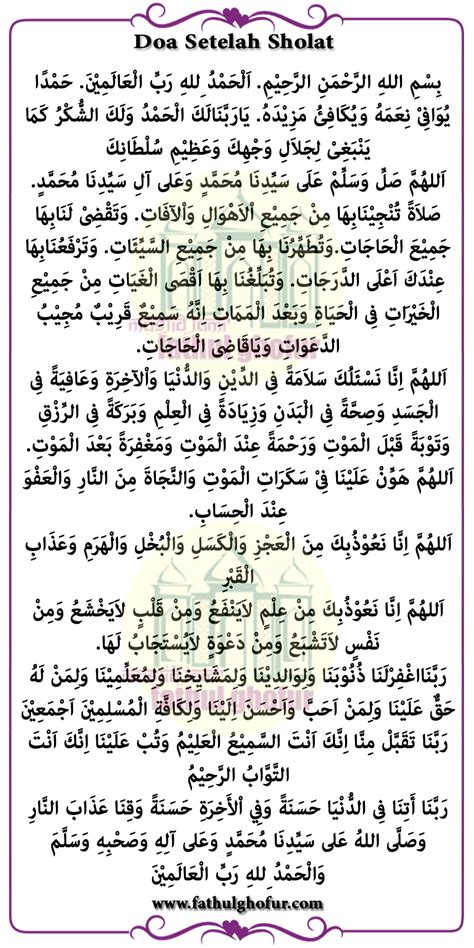 Doa Setelah Sholat
بِسْمِ اللهِ الرَّحْمَنِ الرَّحِيْمِ. اَلْحَمْدُ لِلهِ رَبِّ الْعَالَمِيْنَ. حَمْدًا
يُوَافِيْ نِعَمَهُ وَيُكَافِئُ مَزِيْدَهُ. يَارَبَّنَالَكَ الْحَمْدُ وَلَكَ الشُّكْرُ كَمَا
يَنْبَغِيْ لِجَلاَلِ وَجْهِكَ وَعَظِيْمِ سُلْطَانِكَ
اَللهُمَّ صَلِّ وَسَلِّمْ عَلَى سَيِّدِنَا مُحَمَّدٍ وَعَلى آلِ سَيِّدِنَا مُحَمَّدٍ.
صَلاَةً تُنْجِيْنَابِهَا مِنْ جَمِيْعِ الْاَهْوَالِ وَاْلآفَاتِ. وَتَقْضِىْ لَنَابِهَا
جَمِيْعَ الْحَاجَاتِ.وَتُطَهِّرُنَا بِهَا مِنْ جَمِيْعِ السَّيِّئَاتِ. وَتَرْفَعُنَابِهَا
عِنْدَكَ اَعْلَى الدَّرَجَاتِ. وَتُبَلِّغُنَا بِهَا اَقْصَى الْغَيَاتِ مِنْ جَمِيْعِ
الْخَيْرَاتِ فِى الْحَيَاةِ وَبَعْدَ الْمَمَاتِ اِنَّهُ سَمِيْعٌ قَرِيْبٌ مُجِيْبُ
الدَّعَوَاتِ وَيَاقَاضِىَ الْحَاجَاتِ.
اَللهُمَّ اِنَّا نَسْئَلُكَ سَلاَمَةً فِى الدِّيْنِ وَالدُّنْيَا وَاْلآخِرَةِ وَعَافِيَةً فِى
الْجَسَدِ وَصِحَّةً فِى الْبَدَنِ وَزِيَادَةً فِى الْعِلْمِ وَبَرَكَةً فِى الرِّزْقِ
وَتَوْبَةً قَبْلَ الْمَوْتِ وَرَحْمَةً عِنْدَ الْمَوْتِ وَمَغْفِرَةً بَعْدَ الْمَوْتِ.
اَللهُمَّ هَوِّنْ عَلَيْنَا فِىْ سَكَرَاتِ الْمَوْتِ وَالنَّجَاةَ مِنَ النَّارِ وَالْعَفْوَ
عِنْدَ الْحِسَابِ.
اَللهُمَّ اِنَّا نَعُوْذُبِكَ مِنَ الْعَجْزِ وَالْكَسَلِ وَالْبُخْلِ وَالْهَرَمِ وَعَذَابِ
الْقَبْرِ
اَللهُمَّ اِنَّا نَعُوْذُبِكَ مِنْ عِلْمٍ لاَيَنْفَعُ وَمِنْ قَلْبٍ لاَيَخْشَعُ وَمِنْ
نَفْسٍ لاَتَشْبَعُ وَمِنْ دَعْوَةٍ لاَيُسْتَجَابُ لَهَا.
رَبَّنَااغْفِرْلَنَا ذُنُوْبَنَا وَلِوَالِدِيْنَا وَلِمَشَايِخِنَا وَلِمُعَلِّمِيْنَا وَلِمَنْ لَهُ
حَقٌّ عَلَيْنَا وَلِمَنْ اَحَبَّ وَاَحْسَنَ اِلَيْنَا وَلِكَافَّةِ الْمُسْلِمِيْنَ اَجْمَعِيْنَ
رَبَّنَا تَقَبَّلْ مِنَّا اِنَّكَ اَنْتَ السَّمِيْعُ الْعَلِيْمُ وَتُبْ عَلَيْنَا اِنَّكَ اَنْتَ
التَّوَّابُ الرَّحِيْمُ
رَبَّنَا أَتِنَا فِي الدُّنْيَا حَسَنَةً وَفِي اْلأَخِرَةِ حَسَنَةً وَقِنَا عَذَابَ النَّارِ
وَصَلَّى اللهُ عَلى سَيِّدِنَا مُحَمَّدٍ وَعَلى آلِهِ وَصَحْبِهِ وَسَلَّمَ
وَالْحَمْدُ لِلهِ رَبِّ الْعَالَمِيْنَ
www.fathulghofur.com
masjid jami'
fathul ghofur
fathul ghofur